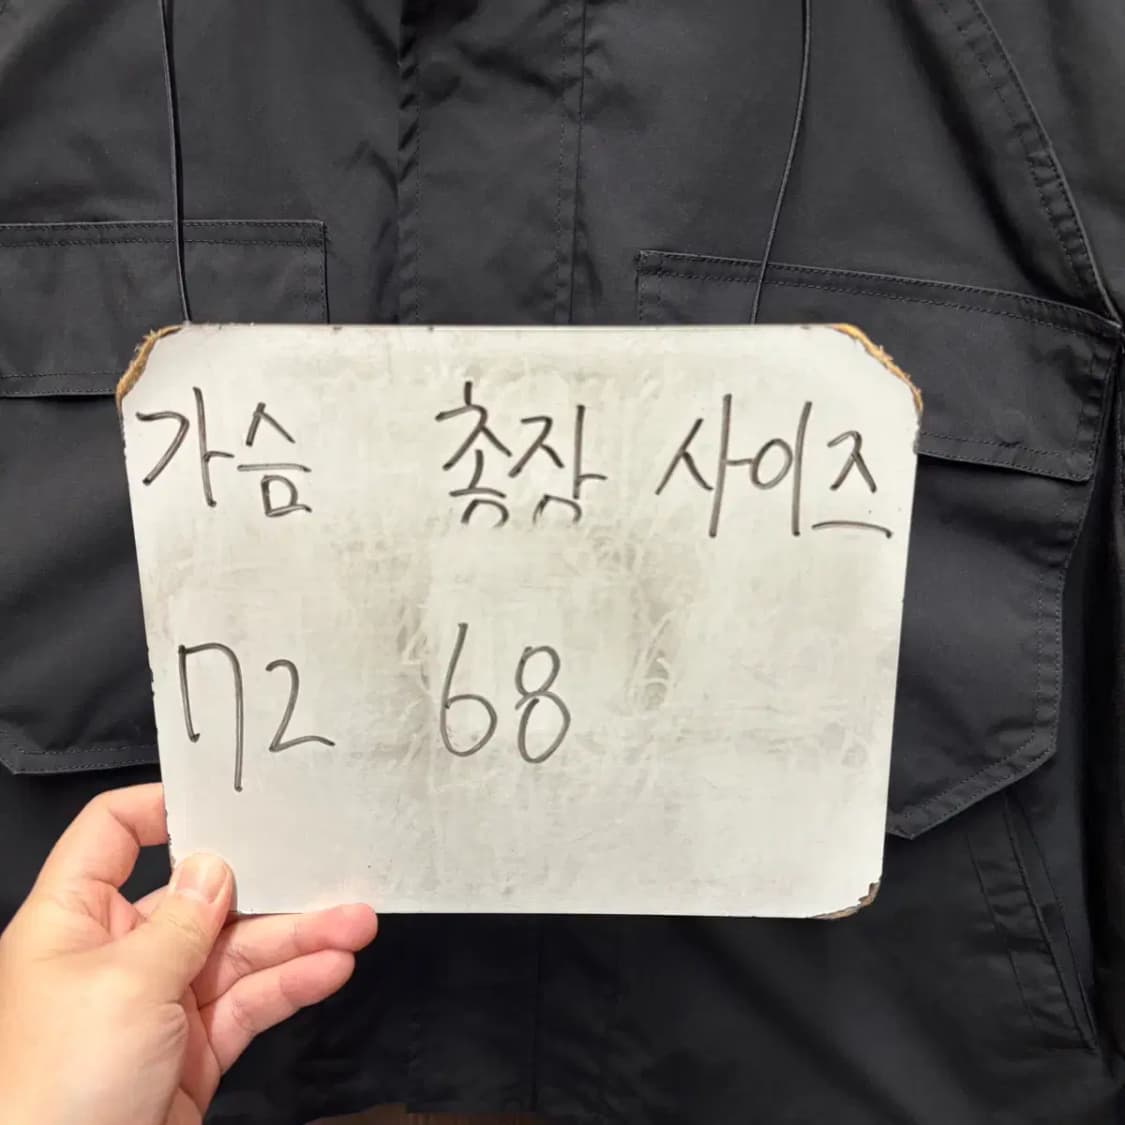 가슴 총장 사이즈
72 68